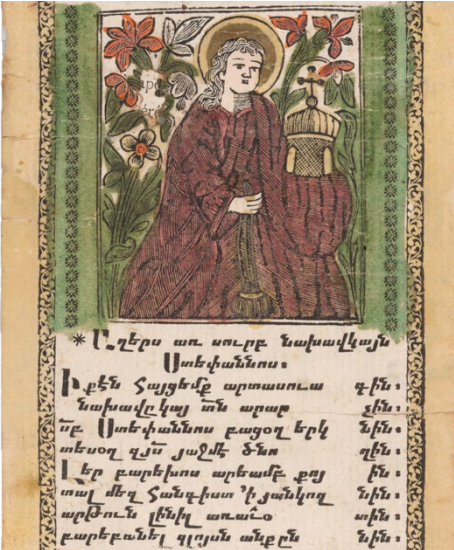 * Աղերս առ սուրբ նախավկայն
Ստեփաննոս։
Ի քէն հայցեմք արտասուա գին։
նախավըկայ տ̃ն արար չին։
ս̃բ Ստեփաննոս բացօղ երկ նին։
տեսօղ զյս̃ յաջմէ ծնո ղին։
Լեր բարեխոս արեամբ քոյ ին։
տալ մեզ հանգիստ ՚ի յանկող նին։
արթուն լինիլ առաւ̃օ տին։
բարեբանել զլոյսն անքըն նին։